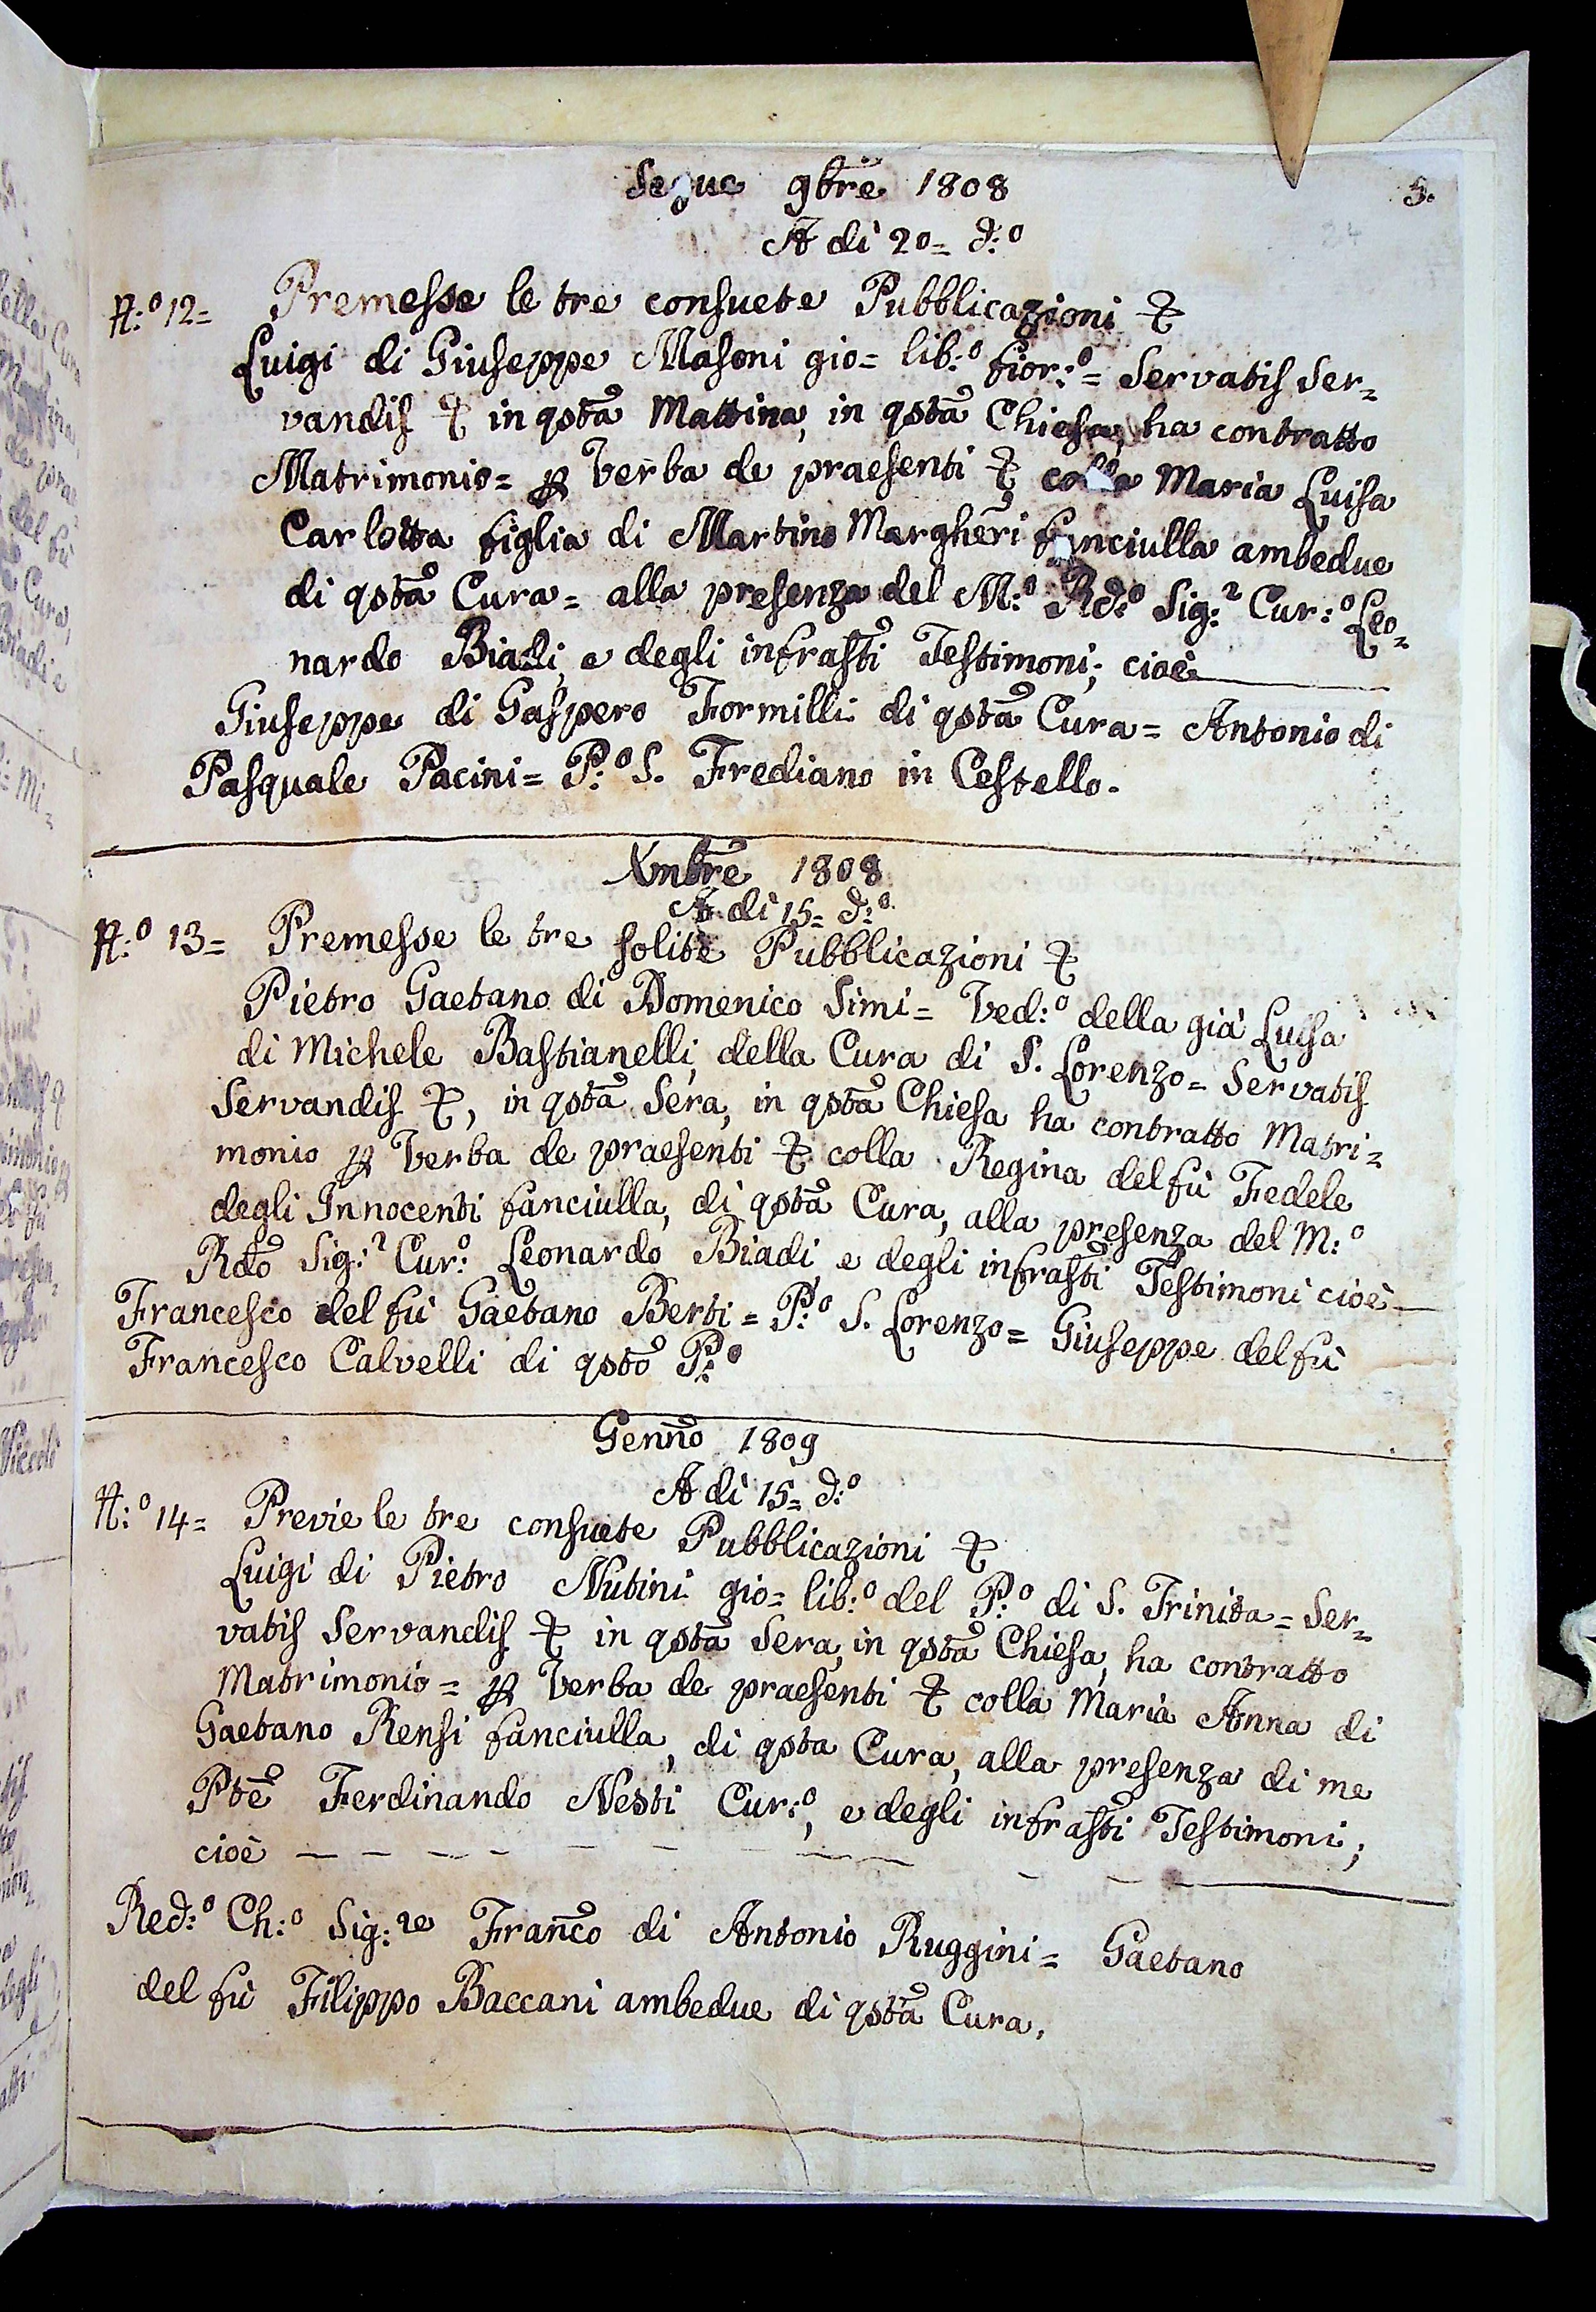 Segue 9bre 1808
5.
A di 20= d:o
N:o 12= Premesse le tre consuete Pubblicazioni &
Luigi di Giuseppe Masoni gio= lib:o fior:o= Servatis Ser=
vandis & in qsta Mattina, in qsta Chiesa, ha contratto
Matrimonio= p Verba de praesenti & colla Maria Luisa
Carlotta figlia di Martino Margheri fanciulla ambedue
di qsta Cura= alla presenza del M:o Rdo Sig:r Cur:o Leo=
nardo Biadi, e degli infrasti Testimoni; cioè
Giuseppe di Gaspero Formilli di qsta Cura= Antonio di
Pasquale Pacini= P:o S. Frediano in Cestello.
Xmbre 1808
A di 15= d:o
N:o 13= Premesse le tre solite Pubblicazioni &
Pietro Gaetano di Domenico Simi= Ved:o della già Luisa
di Michele Bastianelli, della Cura di S. Lorenzo= Servatis
Servandis &, in qsta Sera, in qsta Chiesa ha contratto Matri=
monio p Verba de praesenti & colla Regina del fù Fedele
degli Innocenti fanciulla, di qsta Cura, alla presenza del M:o
Rdo Sig:r Cur:o Leonardo Biadi e degli infrasti Testimoni cioè
Francesco del fù Gaetano Berti= P:o S. Lorenzo= Giuseppe del fù
Francesco Calvelli di qsto P:o
Genno 1809
A di 15= d:o
N:o 14= Previe le tre consuete Pubblicazioni &
Luigi di Pietro Nutini gio= lib:o del P:o di S. Trinita= Ser=
vatis Servandis & in qsta Sera, in qsta Chiesa, ha contratto
Matrimonio= p Verba de praesenti & colla Maria Anna di
Gaetano Rensi fanciulla, di qsta Cura, alla presenza di me
Pte Ferdinando Nesti Cur:o, e degli infrasti Testimoni;
cioè
Red:o Ch:o Sig:re Franco di Antonio Ruggini= Gaetano
del fù Filippo Baccani ambedue di qsta Cura.